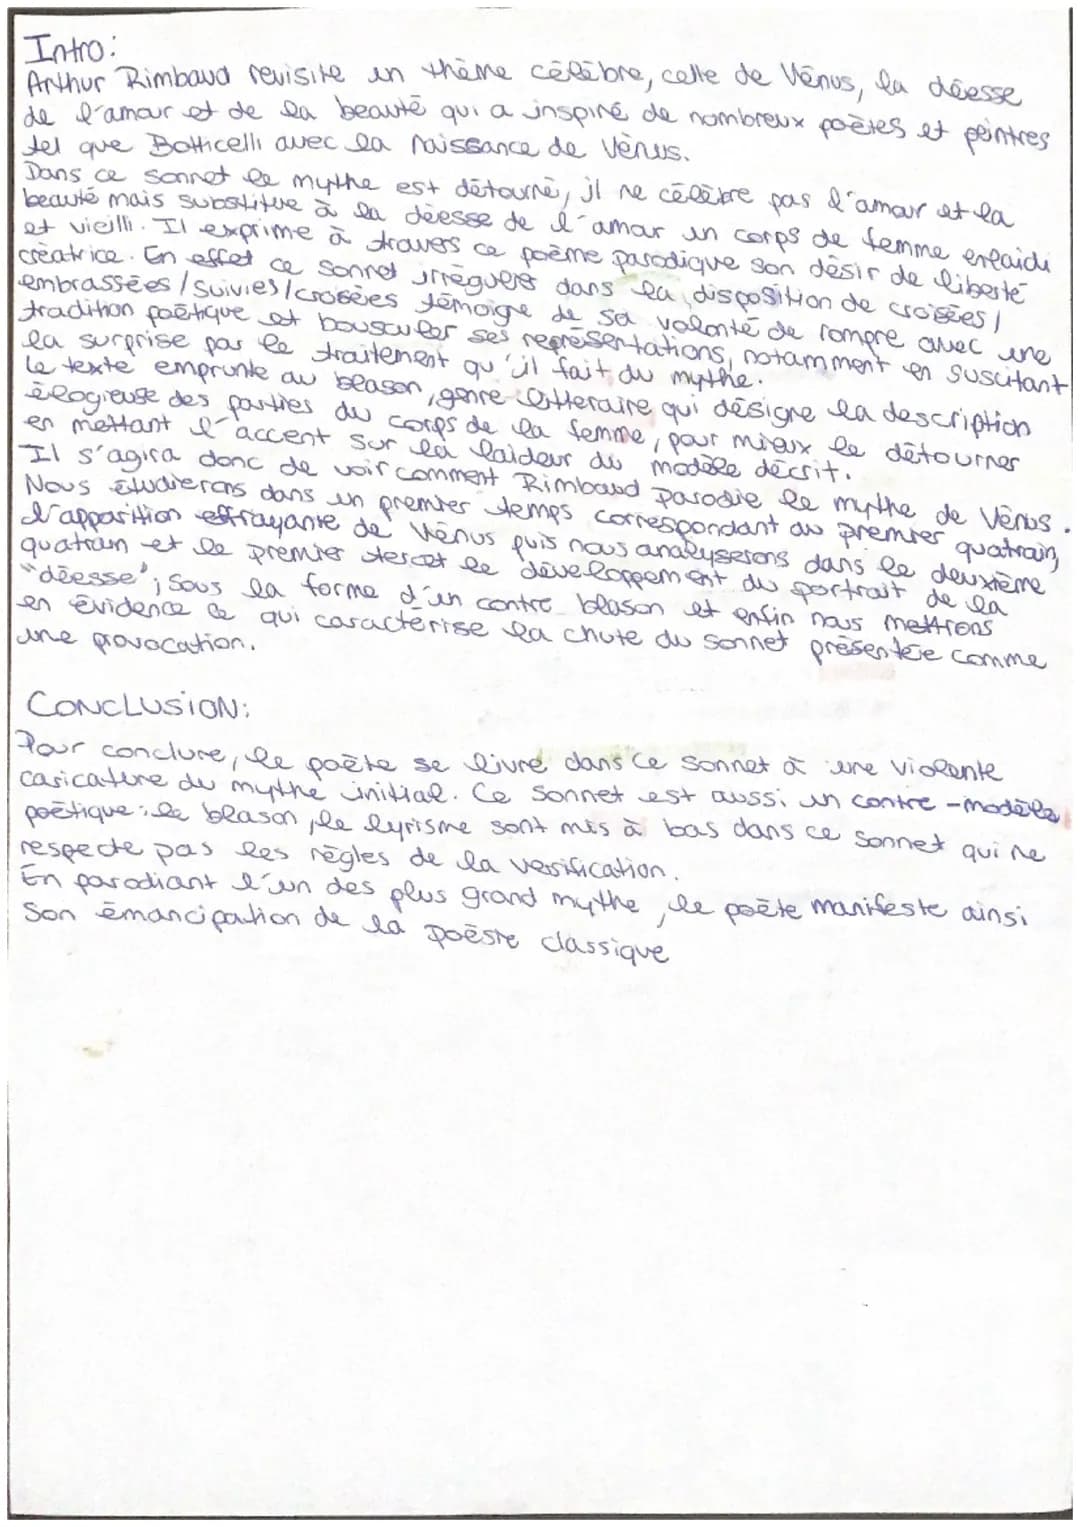 Intro:
Arthur Rimbaud revisite un thème célèbre, celle de Vénus, la déesse
de l'amour et de la beauté qui a inspiré de nombreux poètes et peintres
tel que Botticelli avec la Naissance de Vénus.
Dans ce sonnet le mythe est détourné, il ne célèbre pas l'amour et la
beauté mais substitue à la déesse de l'amour un corps de femme enlaidi
et vieilli. Il exprime à travers ce poème parodique son désir de liberté
créatrice. En effet ce sonnet irrégulers dans la disposition de croisées/
embrassées/suivies/croisées témoigne de sa volonté de rompre avec une
tradition poétique et bousculer ses représentations, notamment en suscitant
la surprise par le traitement qu'il fait du mythe.
Le texte emprunte au blason, genre litteraire qui désigne la description
élogieuse des parties du corps de la femme, pour mieux le détourner
en mettant l'accent sur la laideur du modèle décrit.
Il s'agira donc de voir comment Rimbaud parodie le mythe de Vénus.
Nous étudierons dans un premier temps correspondant au premier quatrain,
l'apparition effrayante de Vénus puis nous analyserons dans le deuxième
quatrain et le premier tercet le développement du portrait de la
"déesse"; sous la forme d'un contre-blason et enfin nous mettrons
en évidence ce qui caractérise la chute du sonnet présentée comme
une provocation.
CONCLUSION:
Pour conclure, le poète se livre dans ce sonnet à une violente
caricature du mythe initial. Ce sonnet est aussi un contre-modèle
poétique: le blason, le lyrisme sont mis à bas dans ce sonnet qui ne
respecte pas les règles de la versification.
En parodiant l'un des plus grand mythe, le poète manifeste ainsi
son émancipation de la poésie classique